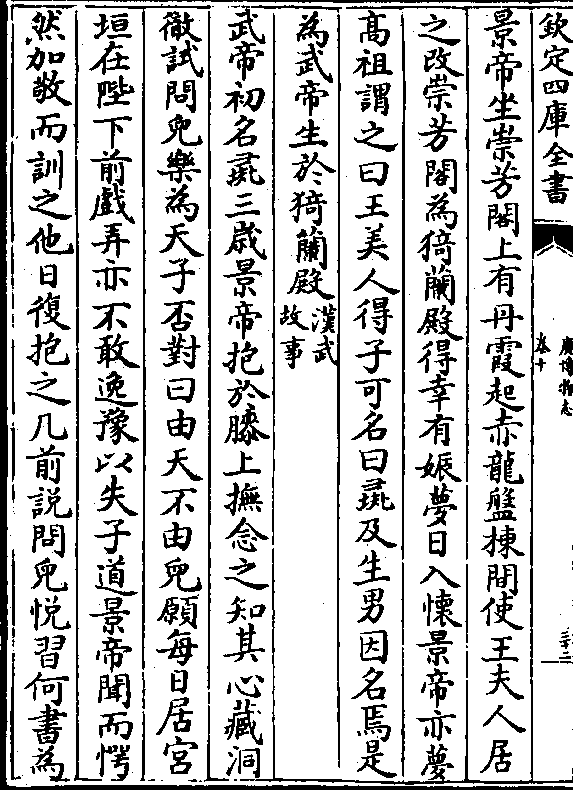 欽定四庫全書
廣博物志
卷十
三二
景帝坐崇芳閣上有丹霞起赤龍盤棟間使王夫人居
之改崇芳閣為猗蘭殿得幸有娠夢日入懷景帝亦夢
髙祖謂之曰王美人得子可名曰彘及生男因名焉是
為武帝生於猗蘭殿漢武故事
武帝初名彘三歲景帝抱於膝上撫念之知其心藏洞
徹試問兒樂為天子否對曰由天不由兒願每日居宮
垣在陛下前戲弄亦不敢逸豫以失子道景帝聞而愕
然加敬而訓之他日復抱之几前説問兒悅習何書為